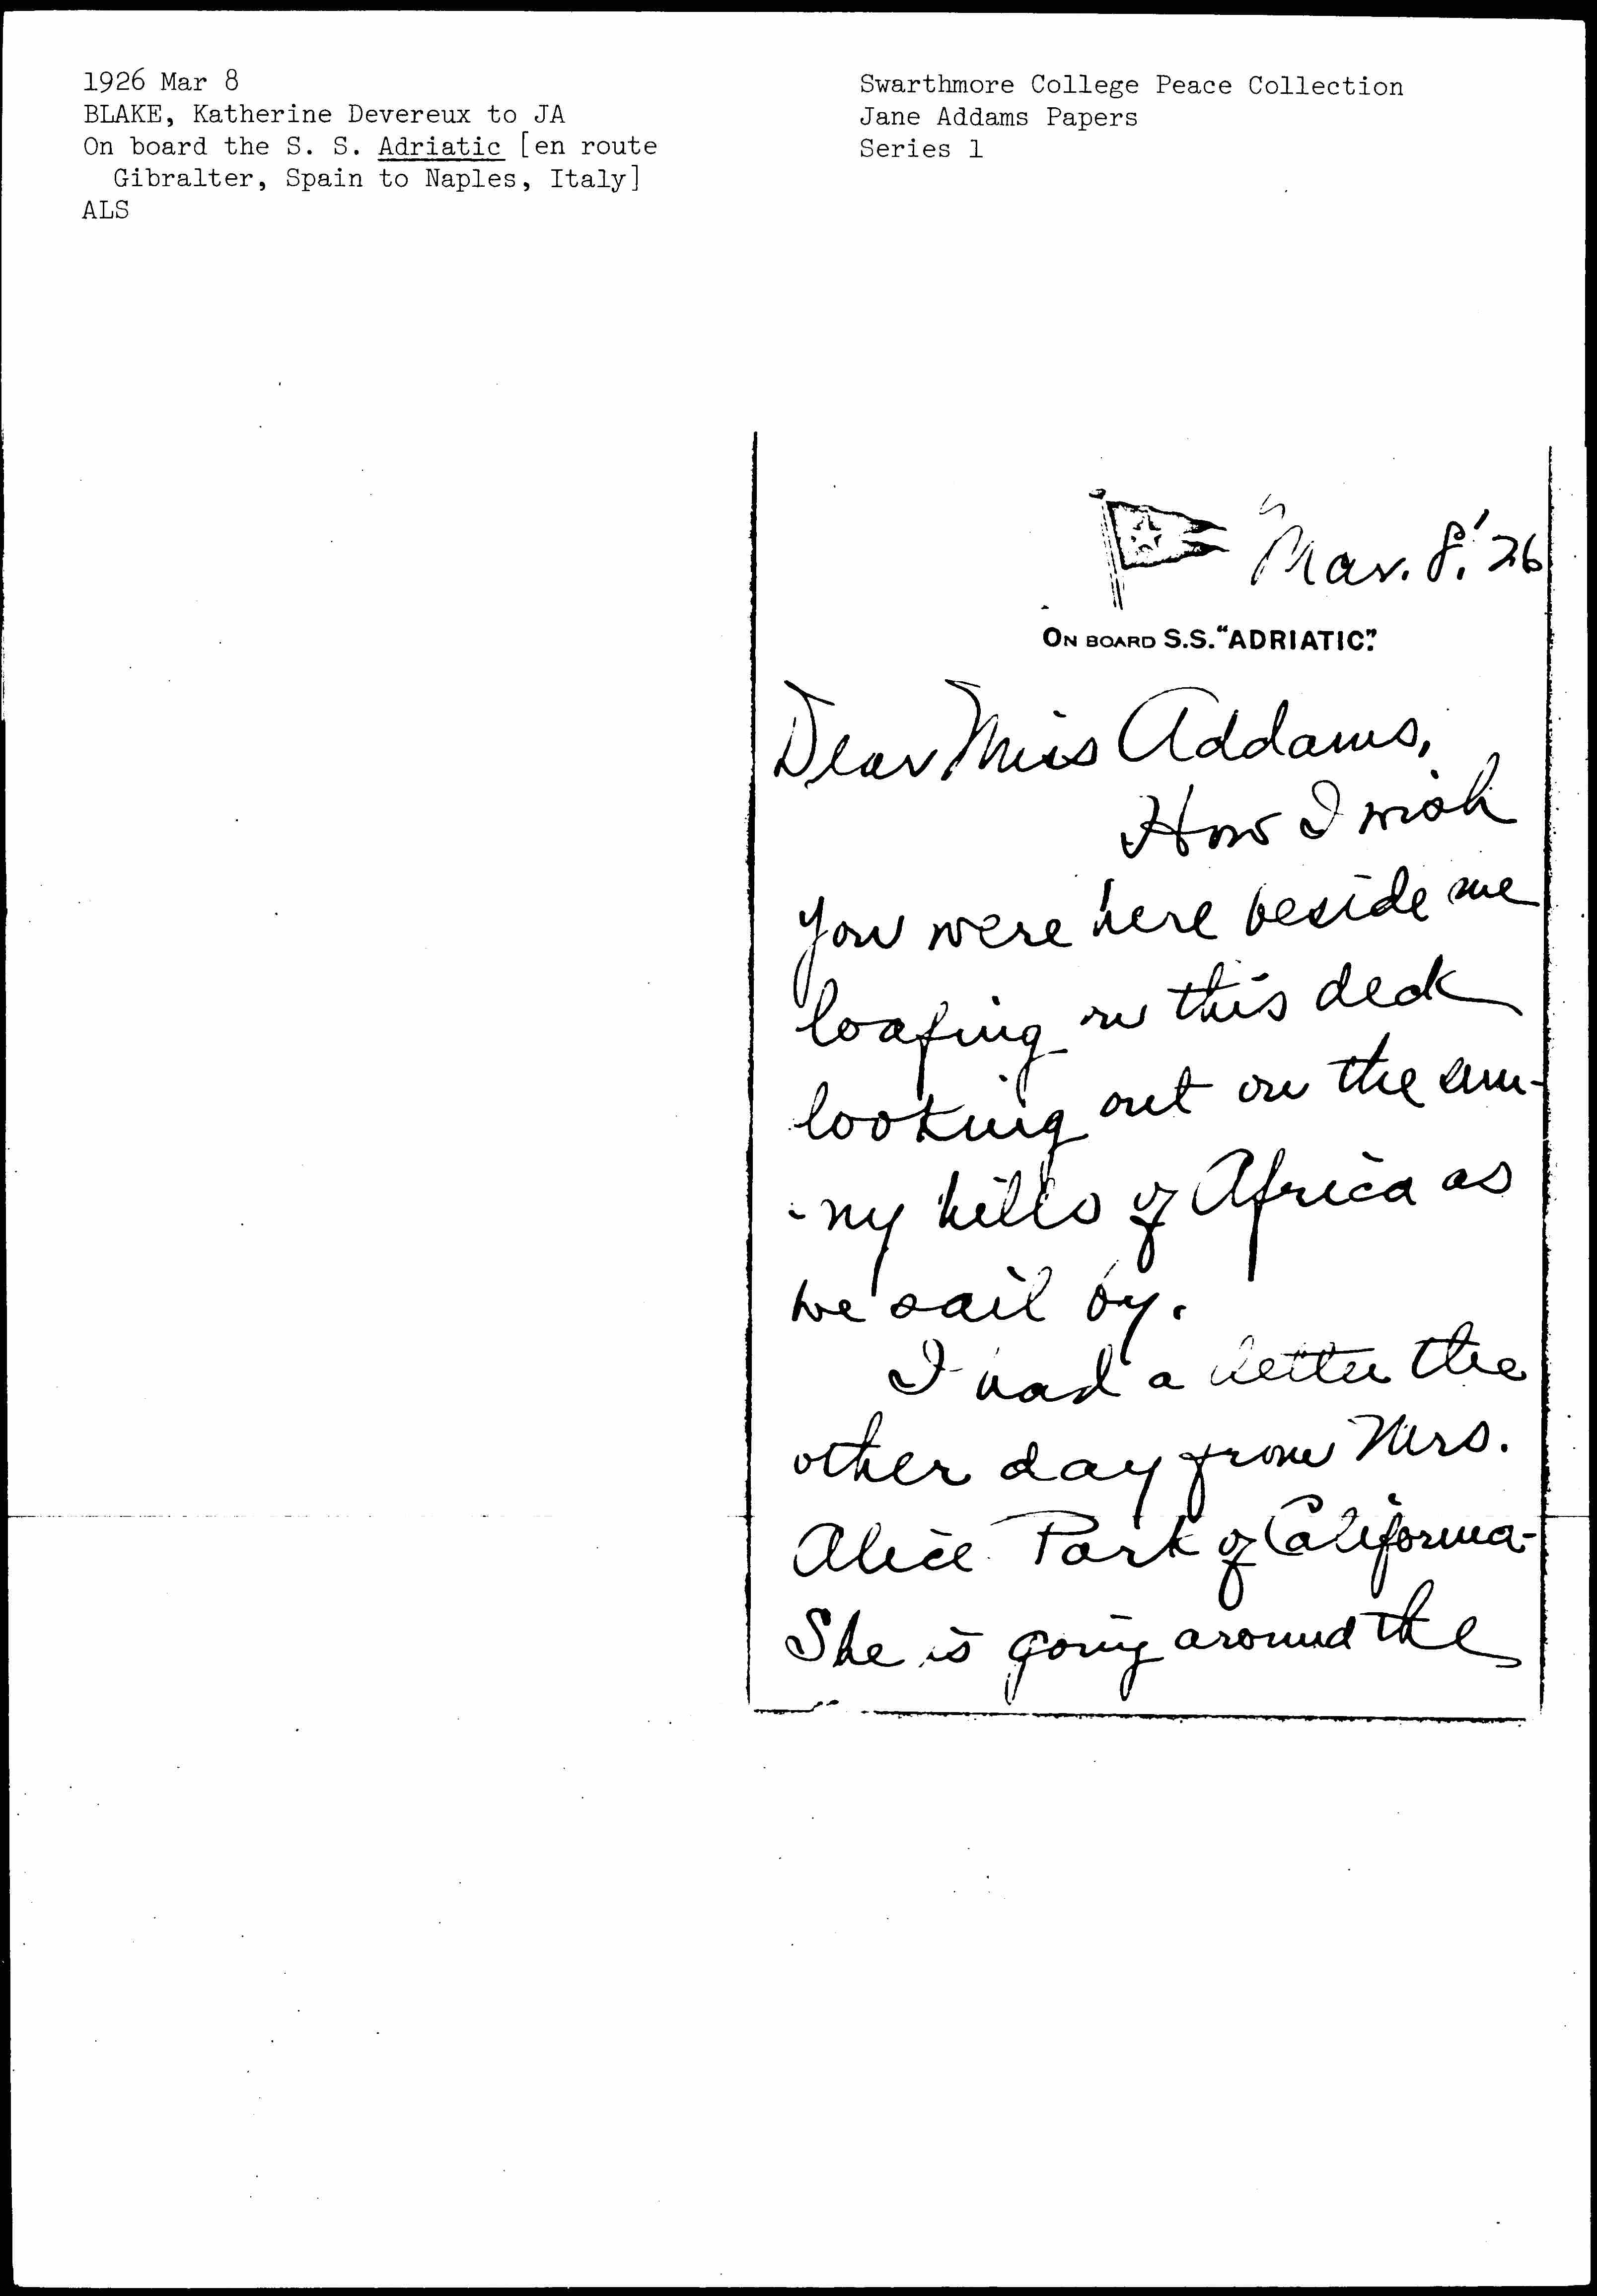 1926 Mar 8
BLAKE, Katherine Devereux to JA
On board the S. S. Adriatic [en route
Gibralter, Spain to Naples, Italy]
ALS
Swarthmore College Peace Collection
Jane Addams Papers
Series 1
Mar. 8. '26
ON BOARD S.S. "ADRIATIC".
Dear Miss Addams,
How I wish
you were here beside me
loafing on this deck
looking out on the sun-
-ny hills of Africa as
we sail by.
I had a letter the
other day from Mrs.
Alice Park of California-
She is going around the